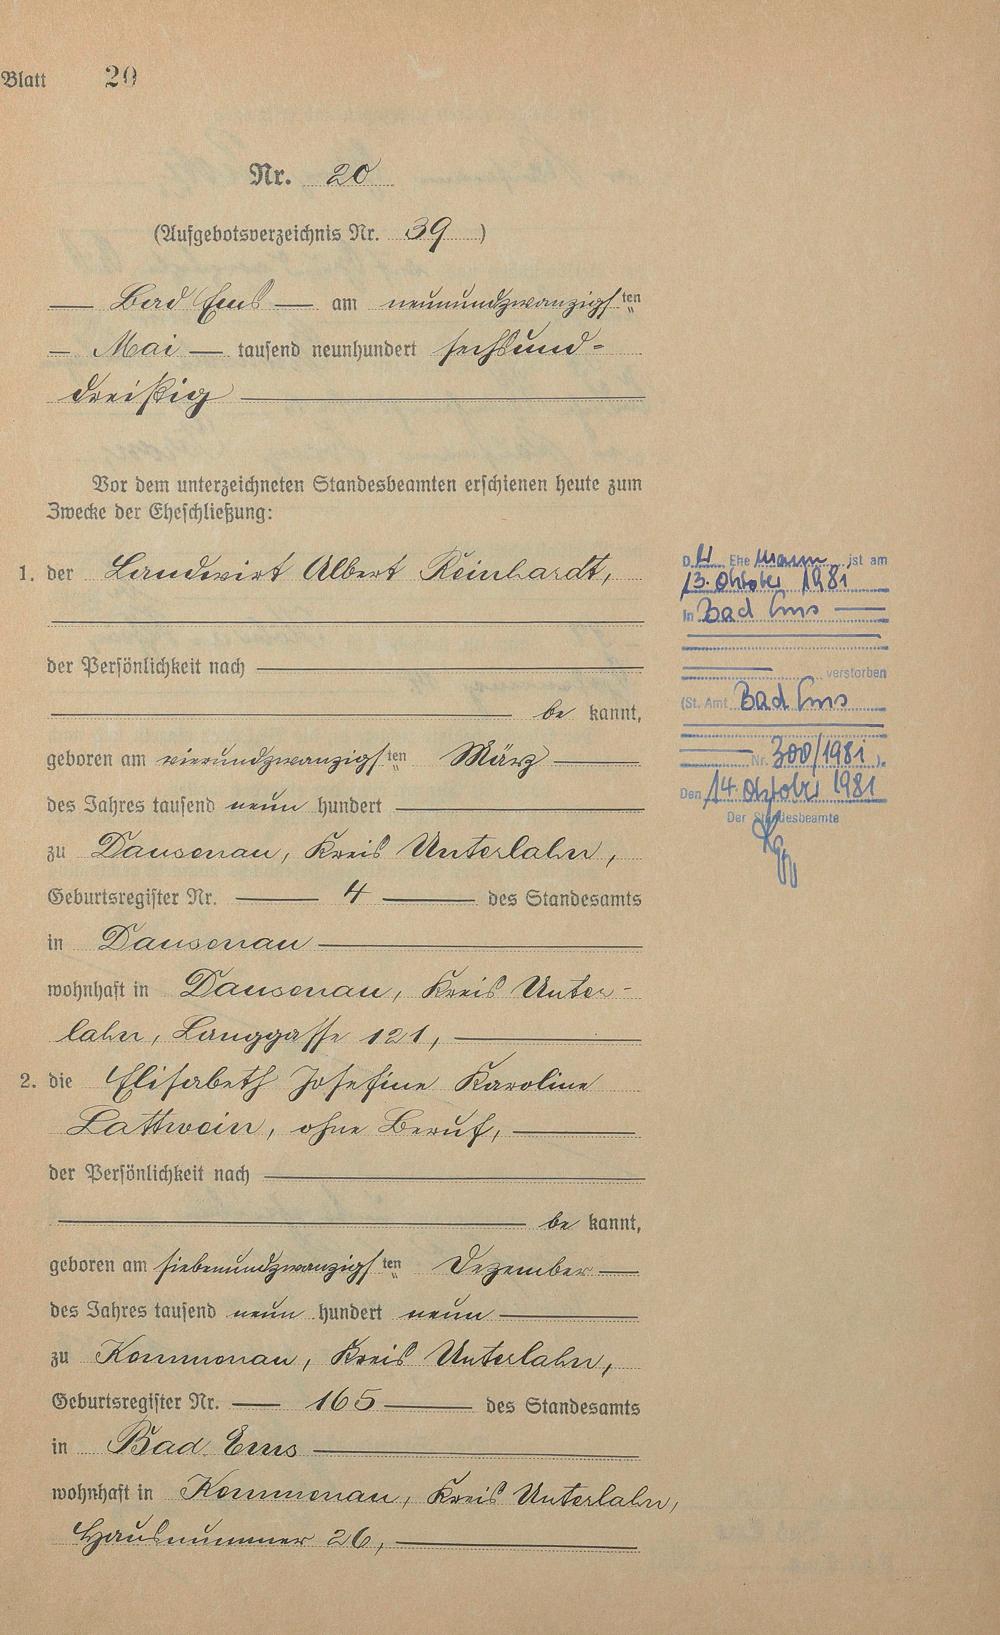 Blatt 20
Nr. 20
(Aufgebotsverzeichnis Nr. 39)
— Bad Ems — am neunundzwanzigsten
— Mai — tausend neunhundert sechsund-
dreißig
Vor dem unterzeichneten Standesbeamten erschienen heute zum
Zwecke der Eheschließung:
1. der Landwirt Albert Reinhardt,
der Persönlichkeit nach
be kannt,
geboren am vierundzwanzigsten März
des Jahres tausend neun hundert
zu Dausenau, Kreis Unterlahn,
Geburtsregister Nr. 4 des Standesamts
in Dausenau
wohnhaft in Dausenau, Kreis Unter-
lahn, Langgasse 121,
2. die Elisabeth Josefine Karoline
Lattwein, ohne Beruf,
der Persönlichkeit nach
be kannt,
geboren am siebenundzwanzigsten Dezember
des Jahres tausend neun hundert neun
zu Kemmenau, Kreis Unterlahn,
Geburtsregister Nr. 165 des Standesamts
in Bad Ems
wohnhaft in Kemmenau, Kreis Unterlahn,
Hausnummer 26,
D. Ehemann ist am
13. Oktober 1981
in Bad Ems
verstorben
(St. Amt Bad Ems
Nr. 300/1981).
Den 14. Oktober 1981
Der Standesbeamte